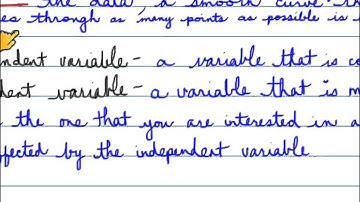 the data, a smooth curve th
es through as many points as possible is
ndent variable - a variable that is co
dent variable - a variable that is m
the one that you are interested in a
ffected by the independent variable.